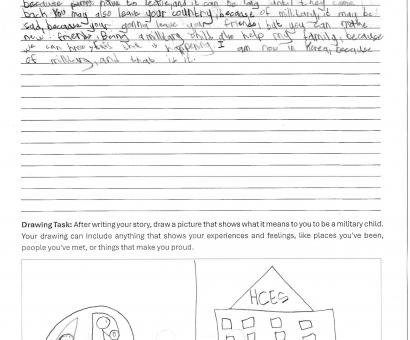 because parents have to leave, and it can be long until they come
back. You may also leave your country, because of military, it may be
sad, because your gonna leave your friends, but you can make
new friends. Being a military child also help my family, because
we can have this is happening I am now in korea, because
of military, and that is it.
Drawing Task: After writing your story, draw a picture that shows what it means to you to be a military child.
Your drawing can include anything that shows your experiences and feelings, like places you've been,
people you've met, or things that make you proud.
HCES